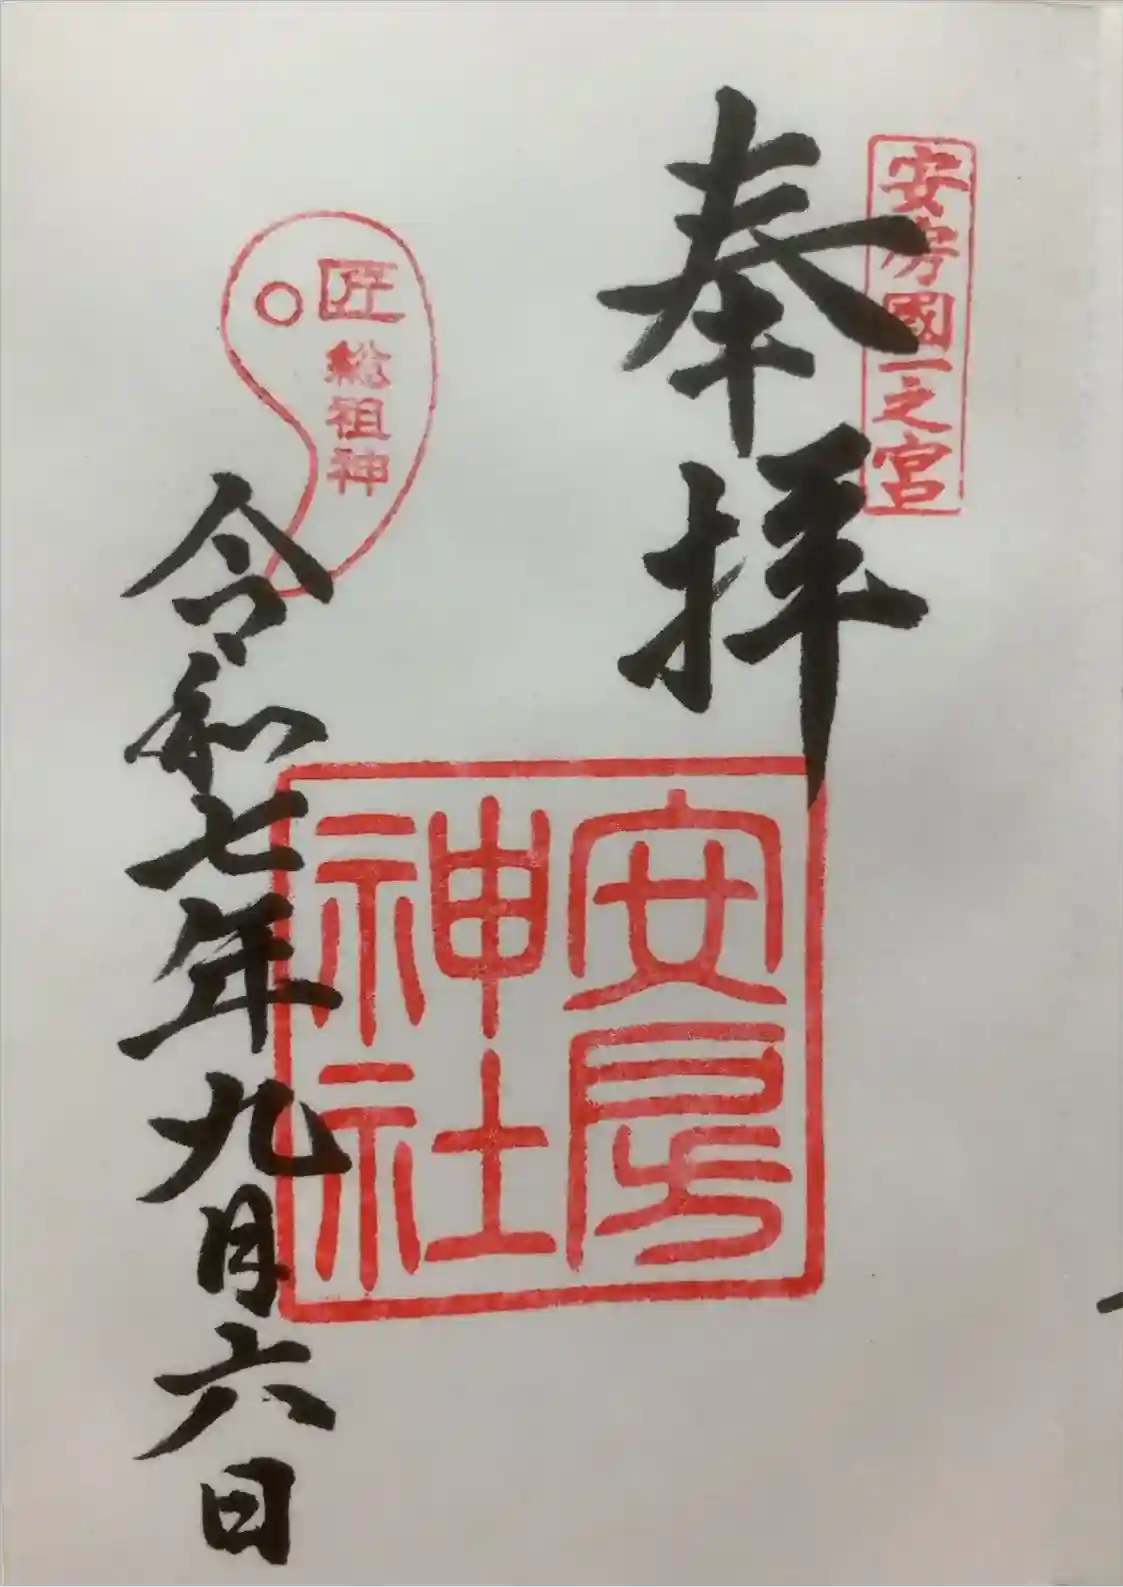 安房國一之宮
奉拝
安房
神社
匠
総祖神
令和七年九月六日